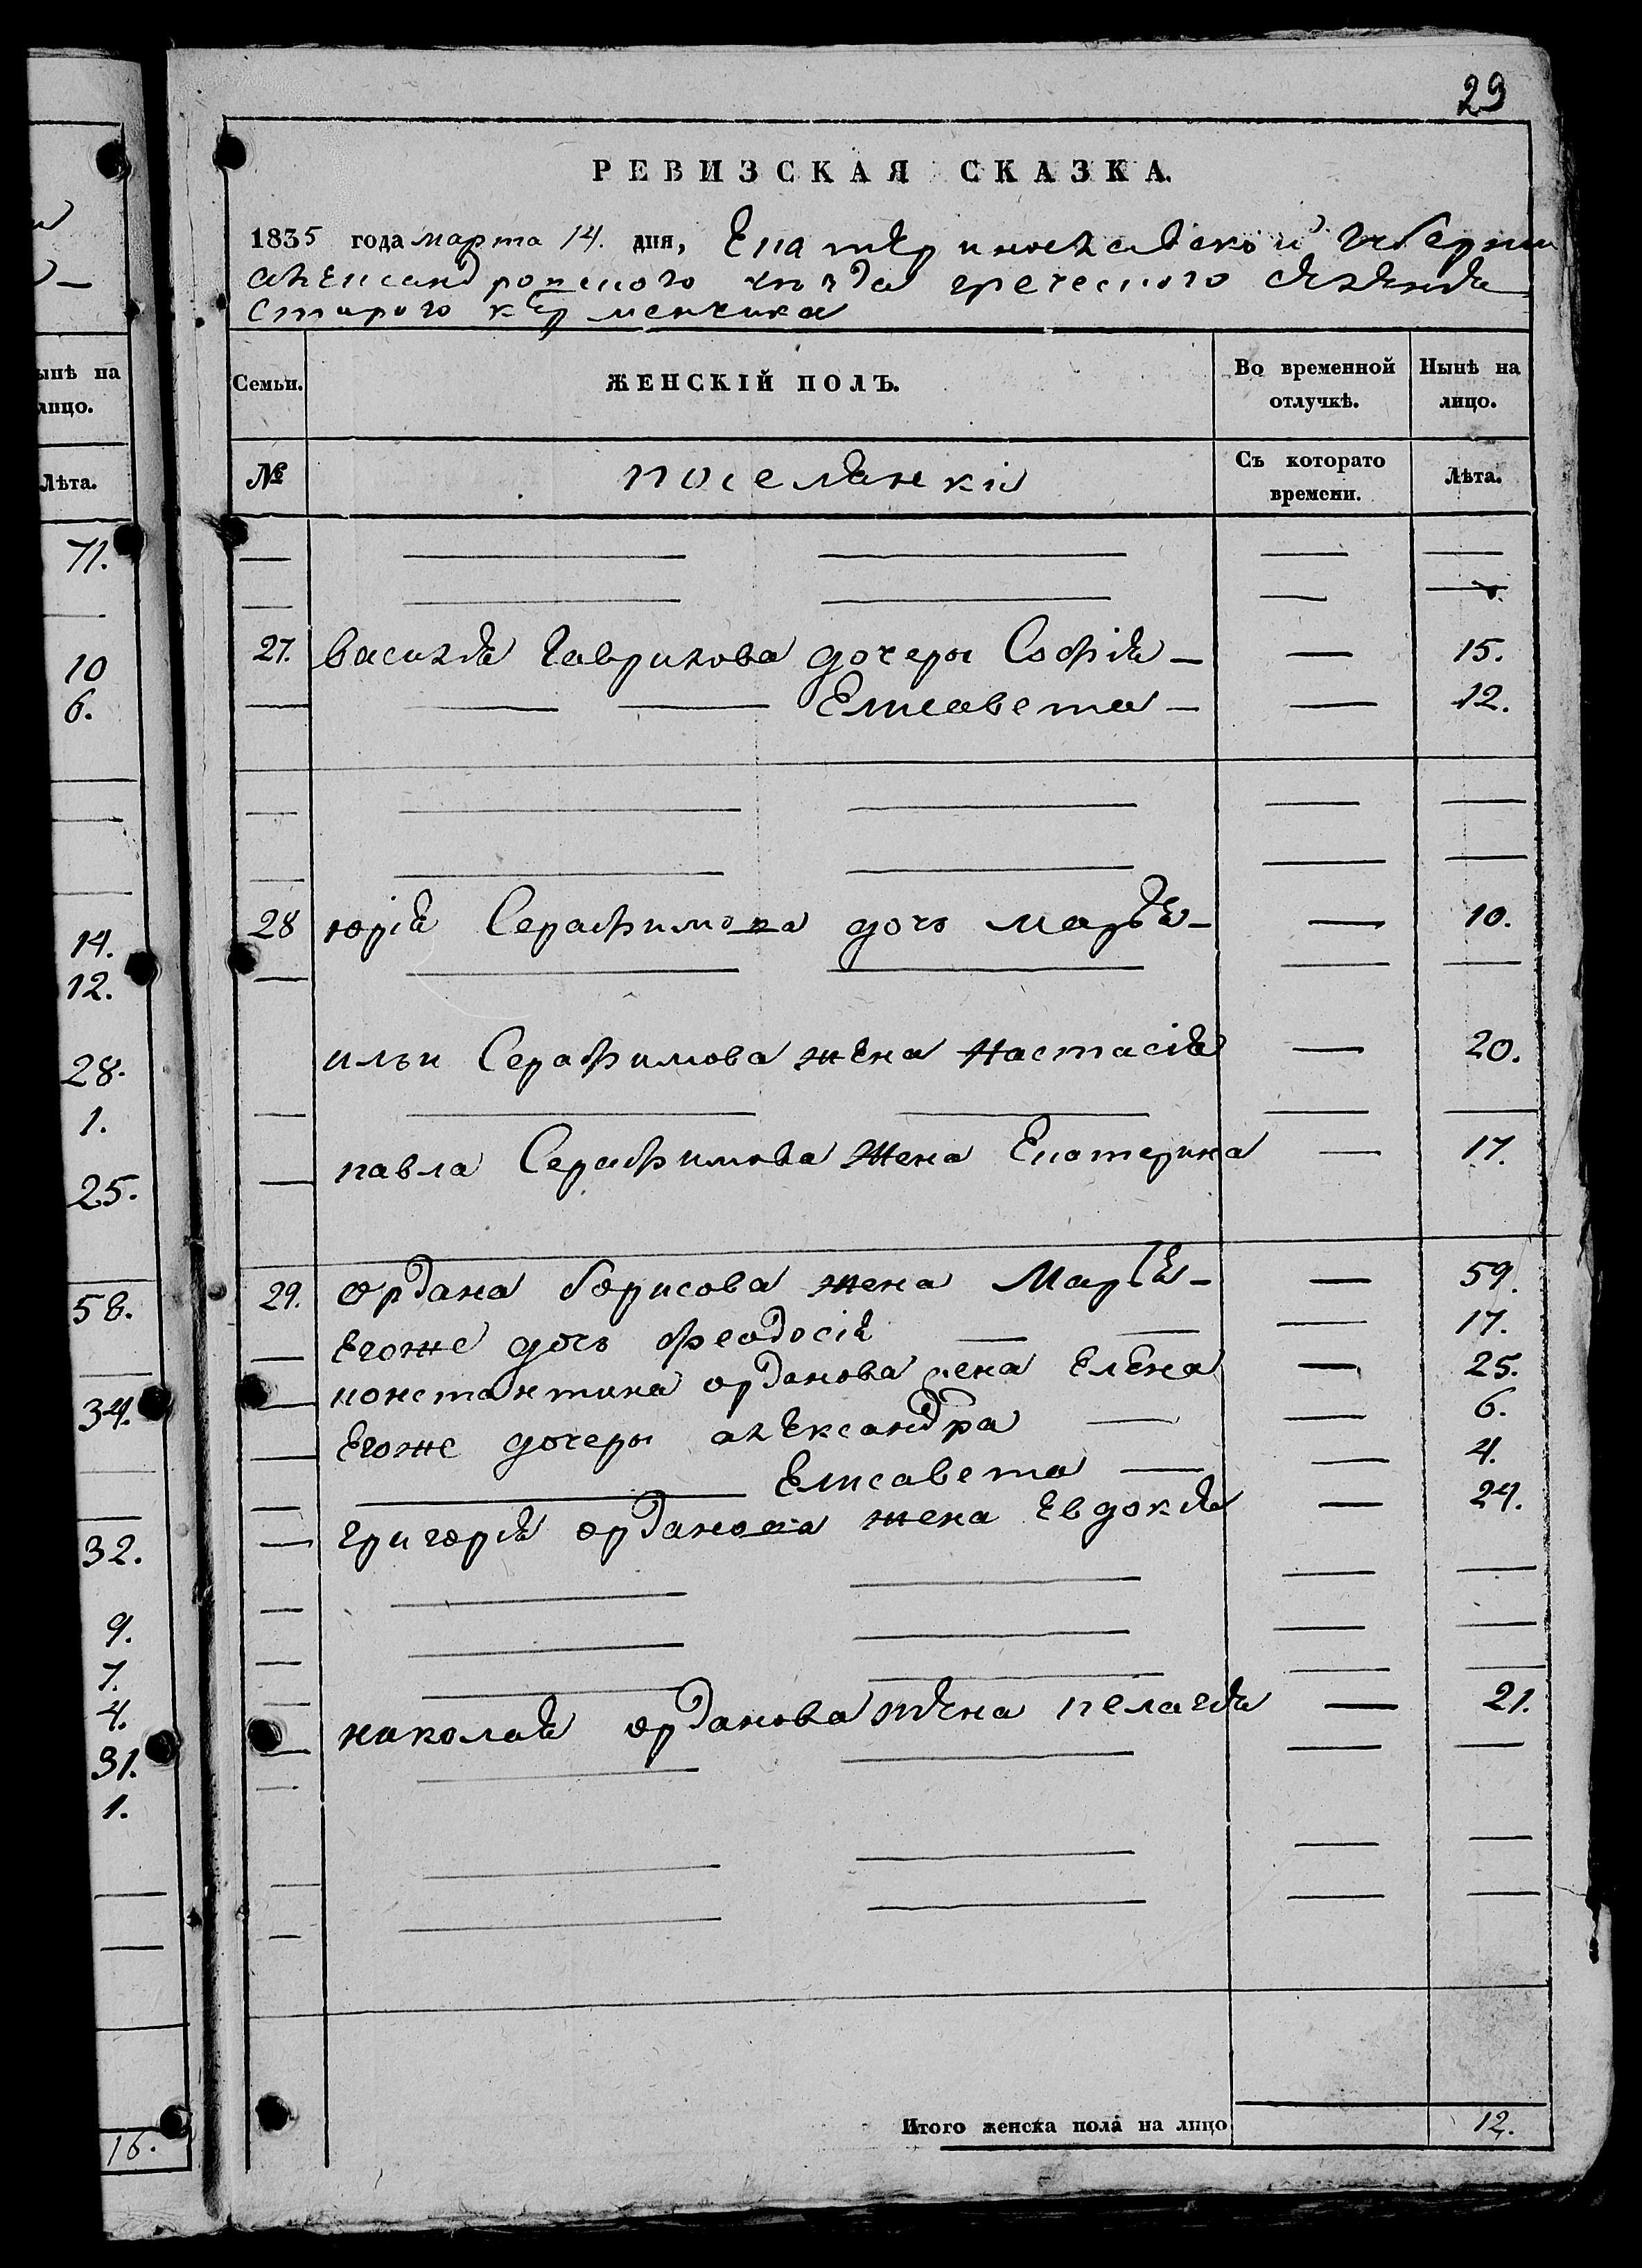 29
РЕВИЗСКАЯ СКАЗКА.
1835 года марта 14. дня, Екатериносла́вской Губернии
александровского уезда греческого селения
старого керменчика
ынѣ на
лицо.
Лѣта.
Семьи. ЖЕНСКІЙ ПОЛЪ. Во временной отлучкѣ. Нынѣ на лицо.
№ поселянки Съ котораго времени. Лѣта.
71.
10
6.
14.
12.
28.
1.
25.
58.
34.
32.
9.
7.
4.
31.
1.
16.
27. василя Гаврилова дочеры Софія — — 15.
— — — Елисавета — — 12.
28 юрія Серафимова дочь марія — — 10.
ильи Серафимова жена Настасія — 20.
павла Серафимова жена Екатерина — 17.
29. юрдана борисова жена Марія — — 59.
Егоже дочь феодосія — — — 17.
константина юрданова жена Елена — 25.
Егоже дочеры александра — — 6.
— Елисавета — — 4.
григорія юрданова жена Евдокія — 24.
николая юрданова жена пелагія — 21.
Итого женска пола на лицо 12.